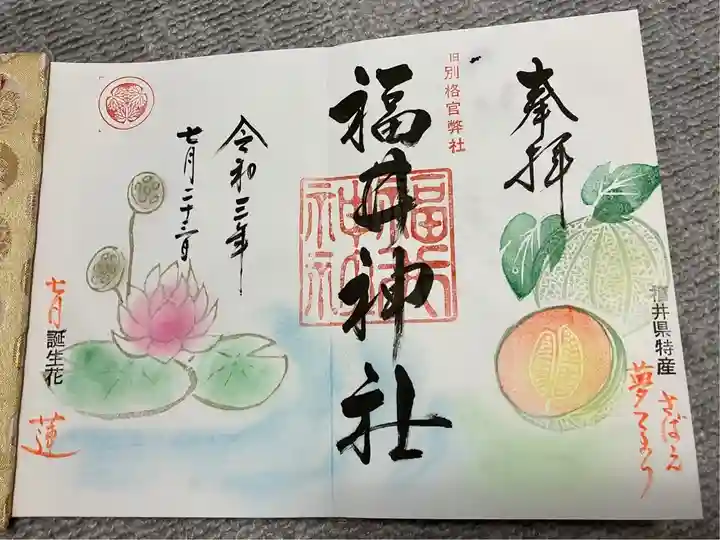 奉拝
旧別格官幣社
福井神社
福井神社
令和三年
七月二十三日
福井県特産
さばえ
夢てまり
七月
誕生花
蓮